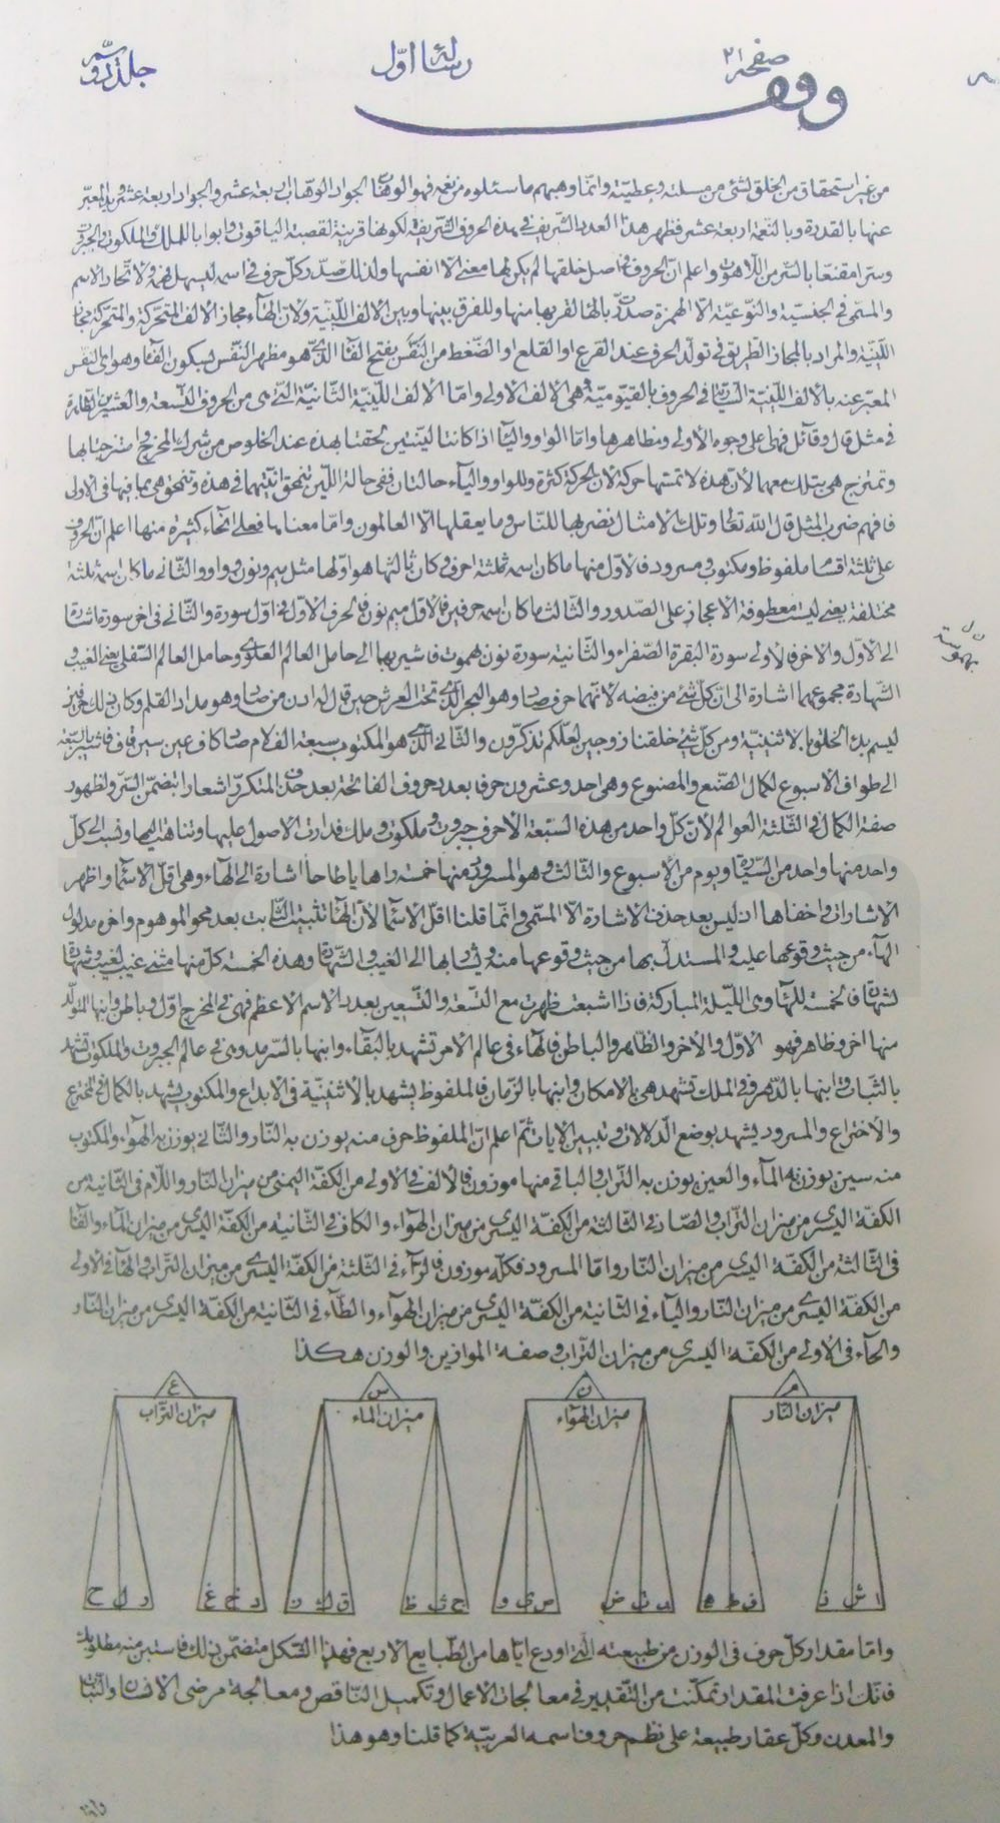 صفحه ٢١
رسالة اوّل
جلد دوم
وقف
من غير استحقاق من الخلق لشئ من مسئلته وعطيّته وانّما وهبهم ما سئلوه من نعمه فهو الوهّاب الجواد الوهّاب اربعة عشر والجواد اربعة عشر
عنها بالقدرة وبالنّعمة اربعة عشر فظهر هذا العدد الشّريف في هذه الحروف الشّريفة لكونها قرينة لقصبة الياقوت وابوابا للملك والملكوت والجبروت
وسترا مقنّعا بالسّر من اللّاهوت واعلم انّ الحروف في اصل خلقها لم يكن لها معنى الا انفسها ولذلك صدّر كلّ حرف في اسمه ليسهل فهمه ولاتّحاد الاسم
والمسمّى في الجنسيّة والنّوعيّة الا الهمزة صدّرت بالهاء لقربها منها وللفرق بينها وبين الالف اللّينيّة ولانّ الهاء مجاز الالف المتحرّكة والمتحرّكة مجاز
اللّينيّة والمراد بالمجاز الطّريق في تولّد الحرف عند القرع او القلع او الضّغط من النّفس بفتح الفاء الّذى هو مظهر النّفس بسكون الفاء وهواى النفس
المعبّر عنه بالالف اللّينيّة السّيّارة في الحروف بالقيّوميّة وهى الالف الاولى وامّا الالف اللّينيّة الثّانية الّتى هى من الحروف التّسعة والعشرين الظّاهرة
في مثل قال وقائل فهما على وجوه الاولى ومظاهرها وامّا الواو والياء اذا كانتا ليّنتين لحقتا بهذه عند الخلوص من شرك المخرج امتزجتا بها
وتمتزج هى بتلك معهما لانّ هذه لا تمسّها حركة لانّ الحركة كثرة وللواو والياء حالتان ففى حالة اللّين تنمحق انّيّتهما في هذه وتمحوهى بما فيها في الاولى
فافهم ضرب المثل قال اللّه تعالى وتلك الامثال نضربها للنّاس وما يعقلها الّا العالمون وامّا معناها فعلى انحاء كثيرة منها اعلم انّ الحروف
على ثلثة اقسام ملفوظ ومكتوب ومسرود فالاوّل منها ما كان اسمه ثلثة احرف وكان ثالثها هو اوّلها مثل ميم ونون وواو والثّانى ما كان اسمه ثلثة
مختلفة يعنى ليست معطوفة الاعجاز على الصّدور والثالث ما كان اسمه حرفين فالاوّل ميم نون فالحرف الاوّل في اوّل سورة والثّانى في اخر سورة اشارة
الى الاوّل والاخر فالاولى سورة البقرة الصّفراء والثّانية سورة نون بهموت فاشير بهما الى حامل العالم العلوى وحامل العالم السّفلى يعنى الغيب و
الشّهادة مجموعهما اشارة الى انّ كلّ شئ من فيضه لانّهما حرف صاد وهو البحر الّذى تحت العرش حين قال له ادن من صاد وهو مداد القلم وكان ذلك حرفين
ليسم بدء الخلق بالاثنينيّة ومن كلّ شئ خلقنا زوجين لعلّكم تذكّرون والثّانى الّذى هو المكتوب سبعة الف لام صاد كاف عين سين قاف فاشير بالسّبعة
الى طواف الاسبوع لكمال الصّنع والمصنوع وهى احد وعشرون حرفا بعدد حروف الفاتحة بعد حذف المتكرّر اشعارا بتضمّن السّر ولظهور
صفة الكمال في الثّلثة العوالم لانّ كلّ واحد من هذه السّبعة الاحرف جبروت وملكوت وملك فدارت الاصول عليها وتناهت اليها ونسب الى كلّ
واحد منها واحد من السّيّارة ويوم من الاسبوع والثّالث وهو المسرود منها خمسة را ها يا طا حا اشارة الى الهاء وهى قلّ الاسماء واظهر
الاشارات واخفاها اذ ليس بعد حذف الاشارة الا المسمّى وانّما قلنا اقلّ الاسماء لانّ الهاء تثبيت الثّابت بعد محو الموهوم واخره مدلول
الهاء من حيث وقوعها عليه والمستدلّ بها من حيث وقوعها منه ويشار بها الى الغيب والشّهادة وهذه الخمسة كلّ منها مثنى غيب لغيب وشهادة
لشهادة فالخمسة للهاء وهى اللّيلة المباركة فاذا اشبعت ظهرت مع التّسعة والتّسعين بعدد الاسم الاعظم فهى في المخرج اوّل وباطن وابنها المتولّد
منها اخر وظاهر فهو الاوّل والاخر والظّاهر والباطن فالهاء في عالم الامر تشهد بالبقاء وابنها بالسّرمد وهى في عالم الجبروت والملكوت تشهد
بالثّبات وابنها بالدّهر وفى الملك تشهد هى بالامكان وابنها بالزّمان فالملفوظ يشهد بالاثنينيّة في الابداع والمكتوب يشهد بالكمال في المخترع
والاختراع والمسرود يشهد بوضع الدّلالات في تبيين الايات ثمّ اعلم انّ الملفوظ حرف منه يوزن به النّار والثّانى يوزن به الهواء والمكتوب
منه سين يوزن به الماء والعين يوزن به التّراب والباقى منها موزون فالالف في الاولى من الكفّة اليمنى من ميزان النّار واللّام في الثّانية من
الكفّة اليسرى من ميزان التّراب والصّاد في الثّالثة من الكفّة اليسرى من ميزان الهواء والكاف في الثّانية من الكفّة اليسرى من ميزان الماء والقاف
في الثّالثة من الكفّة اليسرى من ميزان النّار وامّا المسرود فكلّه موزون فالرّاء في الثلثة من الكفّة اليسرى من ميزان التّراب والهاء في الاولى
من الكفّة اليسرى من ميزان النّار والياء في الثّانية من الكفّة اليسرى من ميزان الهواء والطّاء في الثّانية من الكفّة اليسرى من ميزان النّار
والحاء في الاولى من الكفّة اليسرى من ميزان التّراب وصفة الموازين والوزن هكذا
م ن س ع
ميزان النّار ميزان الهواء ميزان الماء ميزان التّراب
ا ش ذ ف ط ه ب ت ض ص ى و ج ث ظ ق ك ز د خ غ ر ل ح
وامّا مقدار كلّ حرف في الوزن من طبيعته الّتى اودع ايّاها من الطّبايع الاربع فهذا الشّكل متضمّن ذلك فاستبن منه مطلوبك
فانّك اذا عرفت المقدار تمكّنت من التّقدير في معالجات الاعمال وتكميل النّاقص ومعالجة مرضى الانسان والنّبات
والمعدن وكلّ عقار طبيعة على نظم حروف اسمه العربيّة كما قلنا وهو هذا